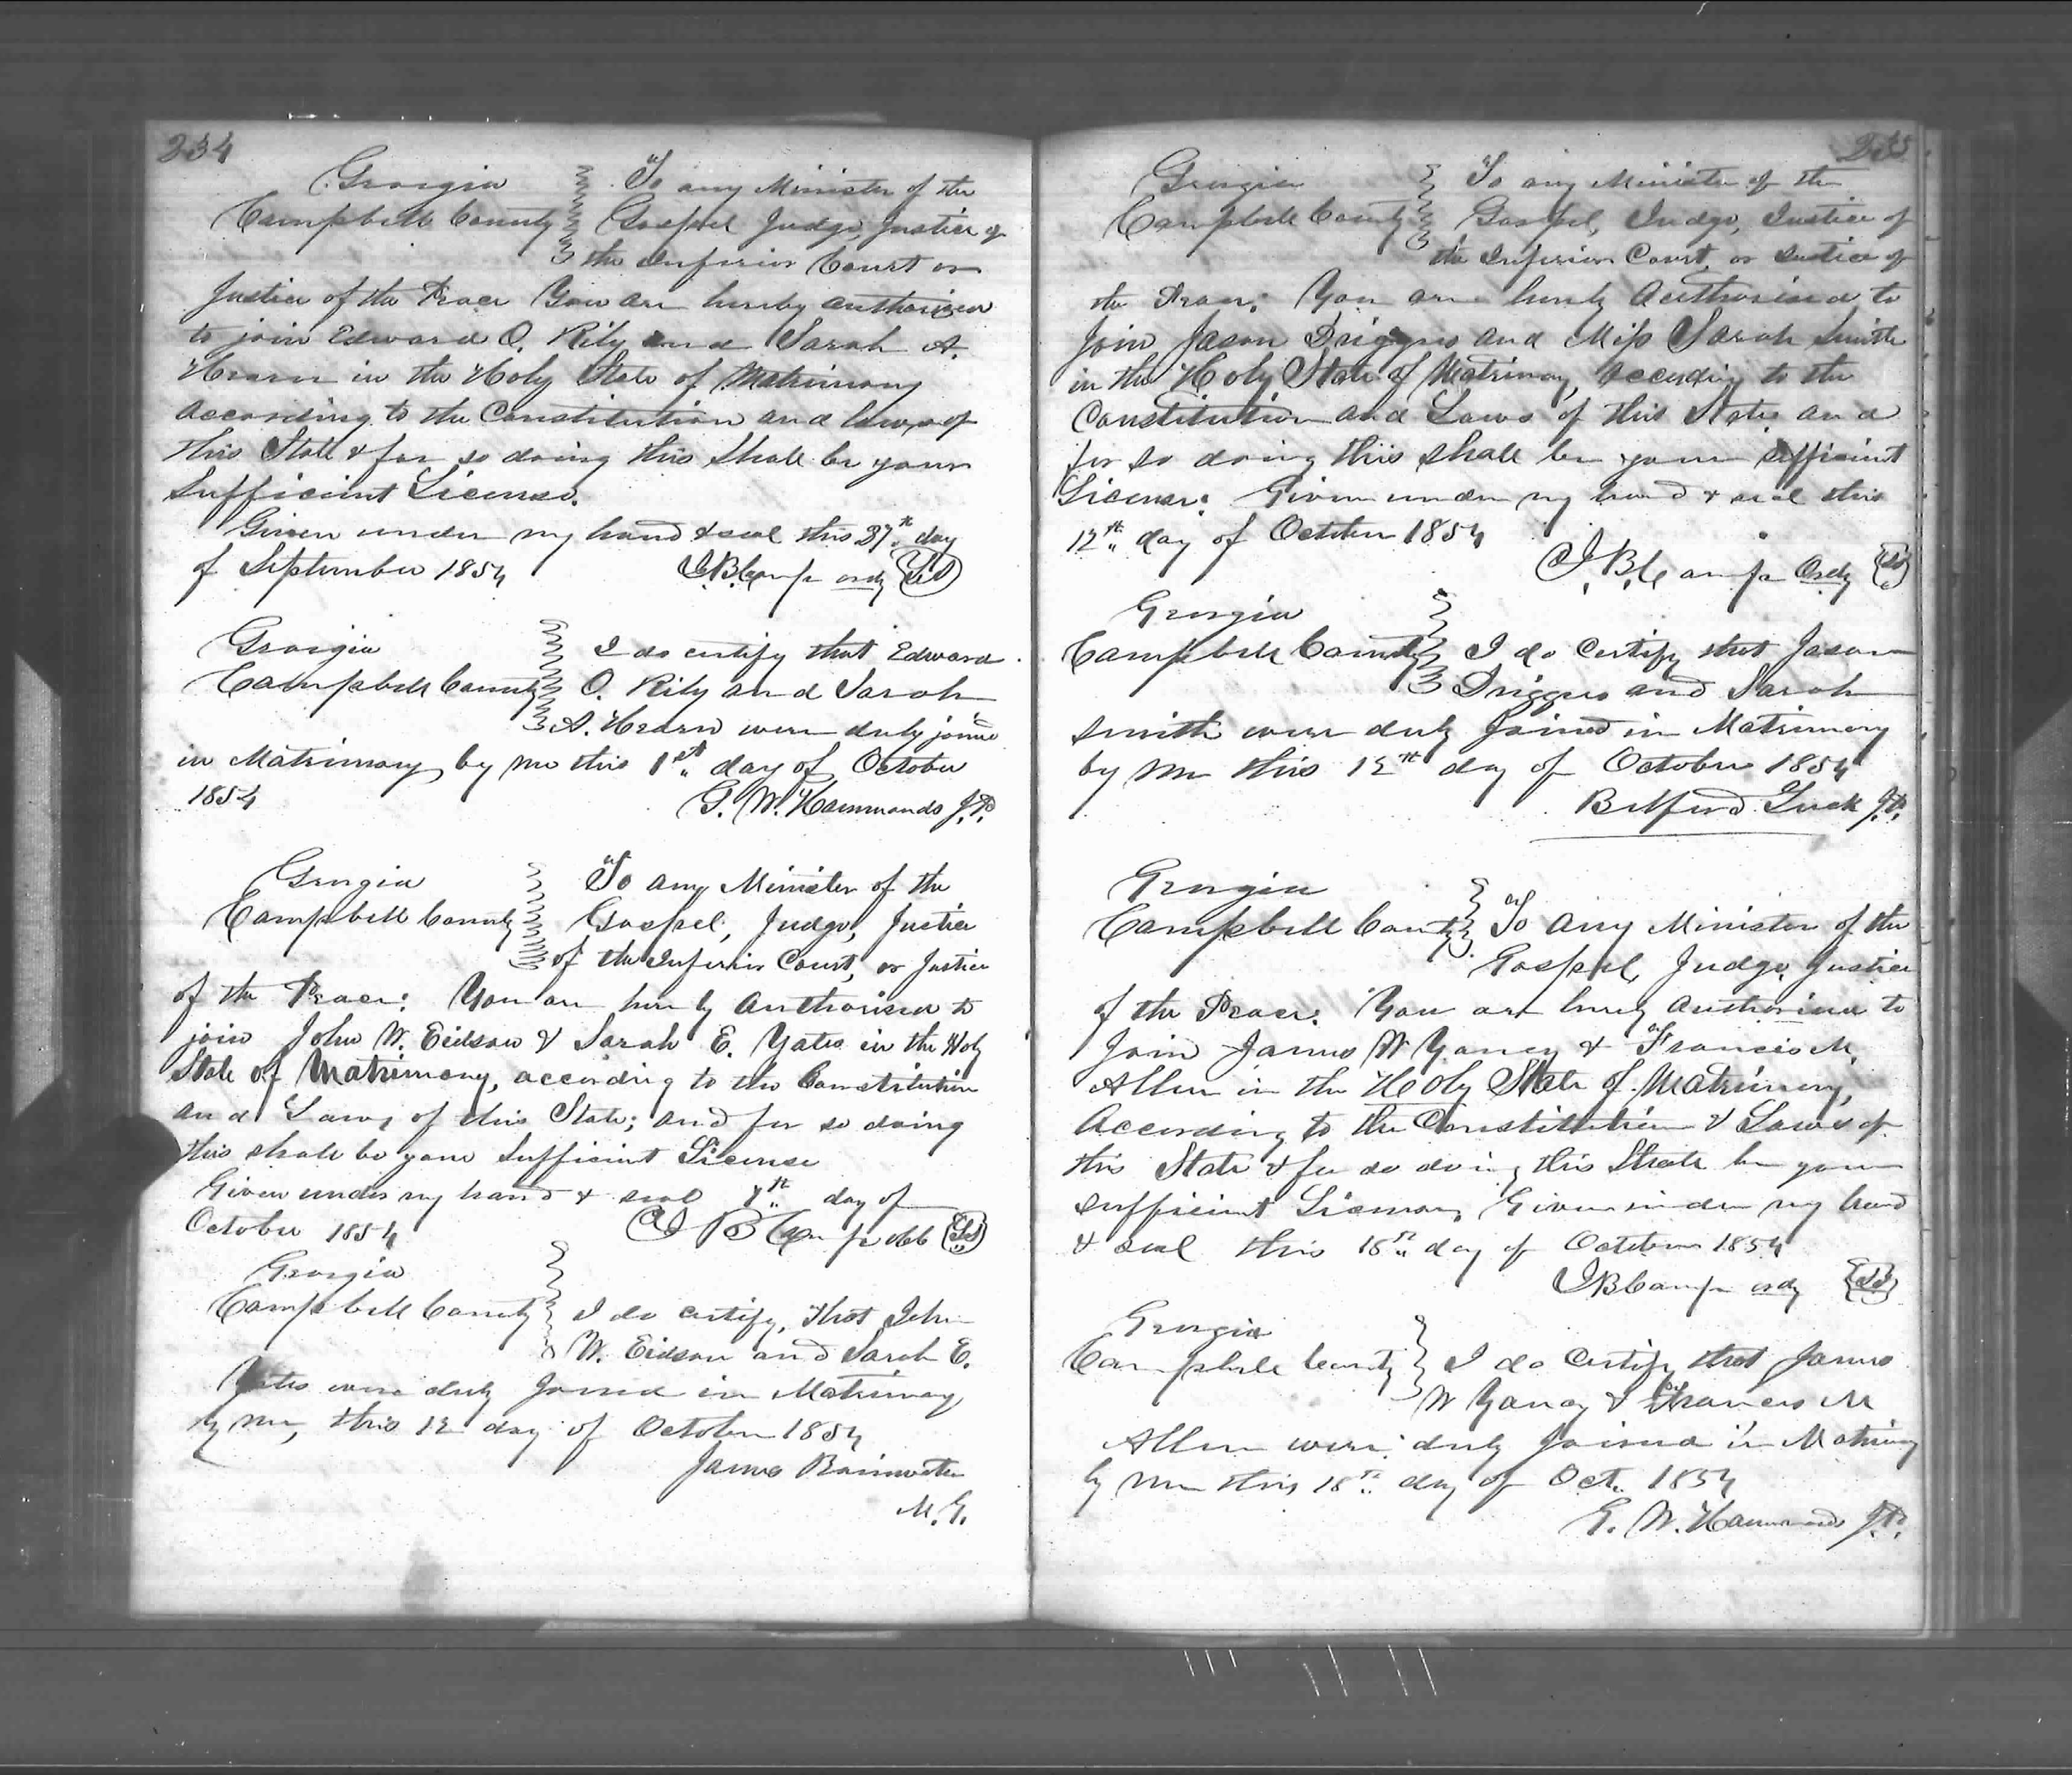 234
Georgia To any Minister of the
Campbell County Gospel Judge, Justice of
the Inferior Court or
Justice of the Peace You are hereby authorized
to join Edward O. Rily and Sarah A.
Hearn in the Holy State of Matrimony
according to the Constitution and laws of
this State & for so doing this Shall be your
Sufficient License.
Given under my hand & seal this 27th day
of September 1854 J.B. Camp ordy LS
Georgia I do certify that Edward
Campbell County O. Rily and Sarah
A. Hearn were duly joined
in Matrimony by me this 1st day of October
1854 G. W. Hammonds J.P.
Georgia To any Minister of the
Campbell County Gospel, Judge, Justice
of the Inferior Court, or Justice
of the Peace: You are hereby Authorised to
join John W. Eidson & Sarah E. Yates in the Holy
State of Matrimony, according to the Constitution
and Laws of this State; and for so doing
this shall be your Sufficient License
Given under my hand & seal day of
October 1854 J B Camp LS
Georgia
Campbell County I do certify, that John
W. Eidson and Sarah E.
Yates were duly Joined in Matrimony
by me, this 12 day of October 1854
James Rainwater
M.G.
235
Georgia To any Minister of the
Campbell County Gospel, Judge, Justice of
the Inferior Court or Justice of
the Peace: You are hereby Authorised to
Join Jason Driggus and Miss Sarah Smith
in the Holy State of Matrimony, According to the
Constitution and Laws of this State and
for so doing this shall be your sufficient
License: Given under my hand & seal this
12th day of October 1854
J.B. Camp Ordy LS
Georgia
Campbell County I do Certify that Jason
Driggus and Sarah
Smith were duly Joined in Matrimony
by me this 12th day of October 1854
Belford Luck J.P.
Georgia
Campbell County To Any Minister of the
Gospel, Judge, Justice
of the Peace: You are hereby authorised to
Join James W Yancy & Francis M.
Allen in the Holy State of Matrimony,
According to the Constitution & Laws of
this State & for so doing this Shall be your
sufficient License, Given under my hand
& seal this 18th day of October 1854
J B Camp ordy LS
Georgia
Campbell County I do Certify that James
W Yancy & Francis M
Allen were duly Joined in Matrimony
by me this 18th day of Oct. 1854
G. W. Hammonds J.P.